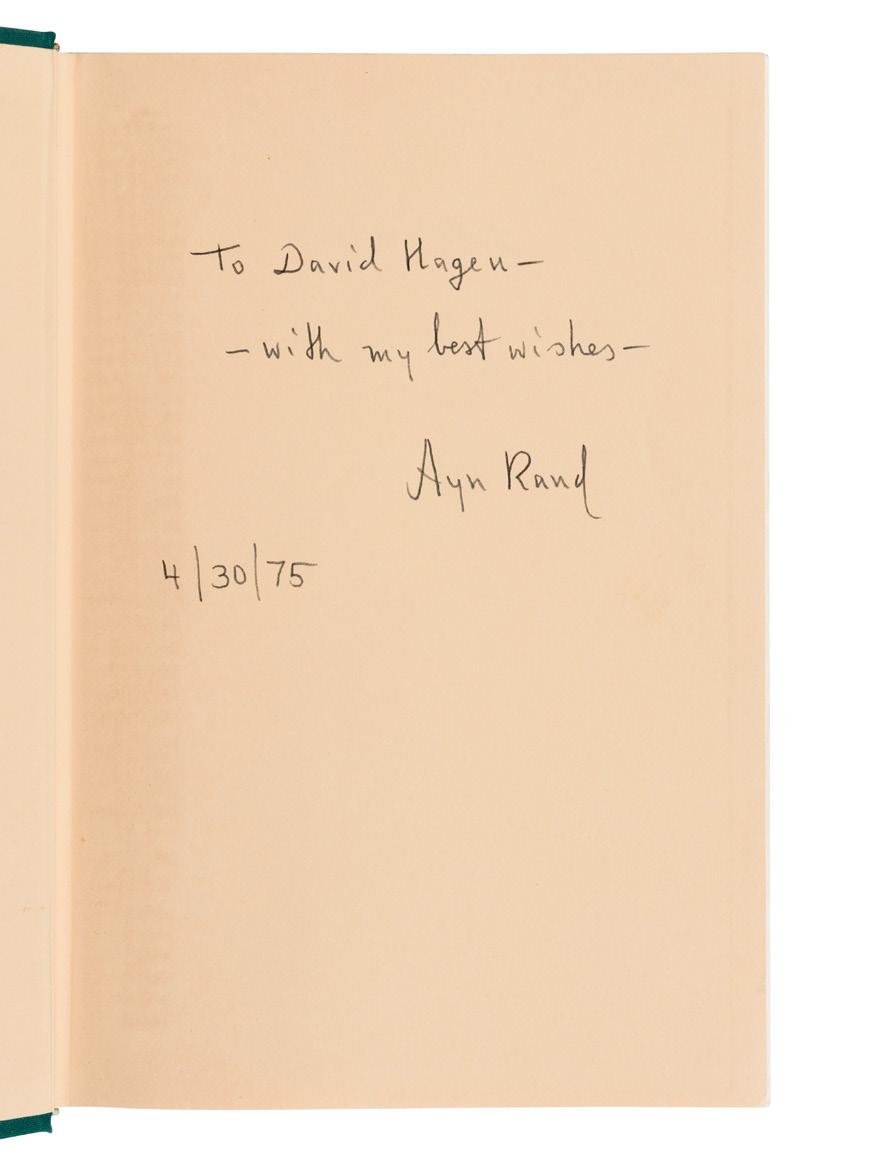 To David Hagen—
— with my best wishes—
Ayn Rand
4/30/75